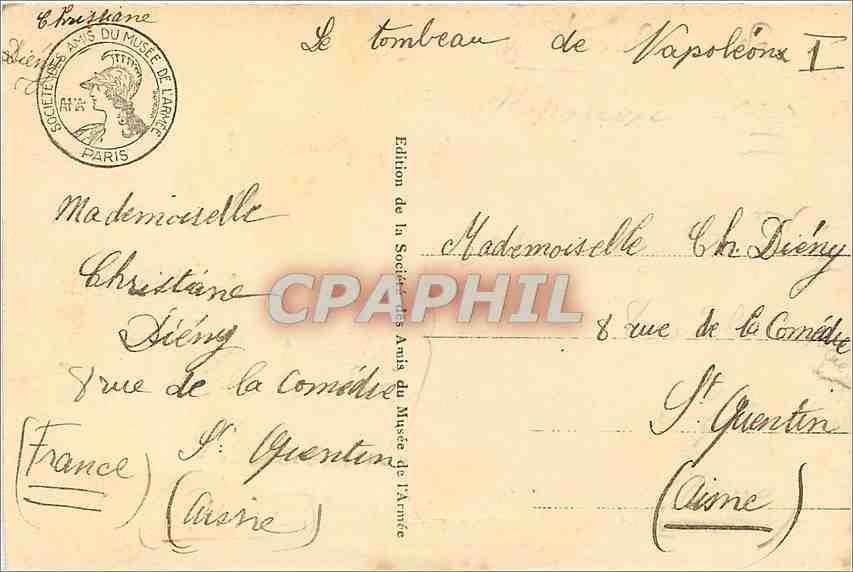 Christiane
Diény
SOCIÉTÉ DES AMIS DU MUSÉE DE L'ARMÉE
PARIS
Le tombeau de Napoléon 1
Edition de la Société des Amis du Musée de l'Armée
Mademoiselle
Christiane
Diény
8 rue de la Comédie
St Quentin
(Aisne)
(France)
Mademoiselle Ch. Diény
8 rue de la Comédie
St Quentin
(Aisne)
CPAPHIL